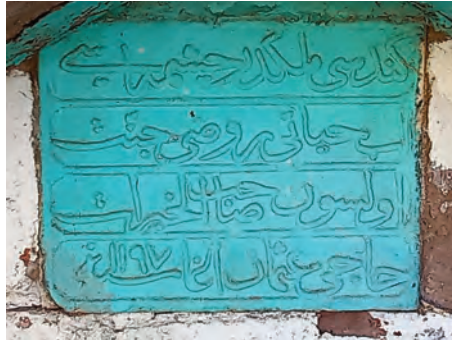 كندسی ملكدر چشمه سی
اب حیاتی روضی جنت
اولسون صاحب الخیرات
حاجی عثمان اغا سنه ١١٩٧